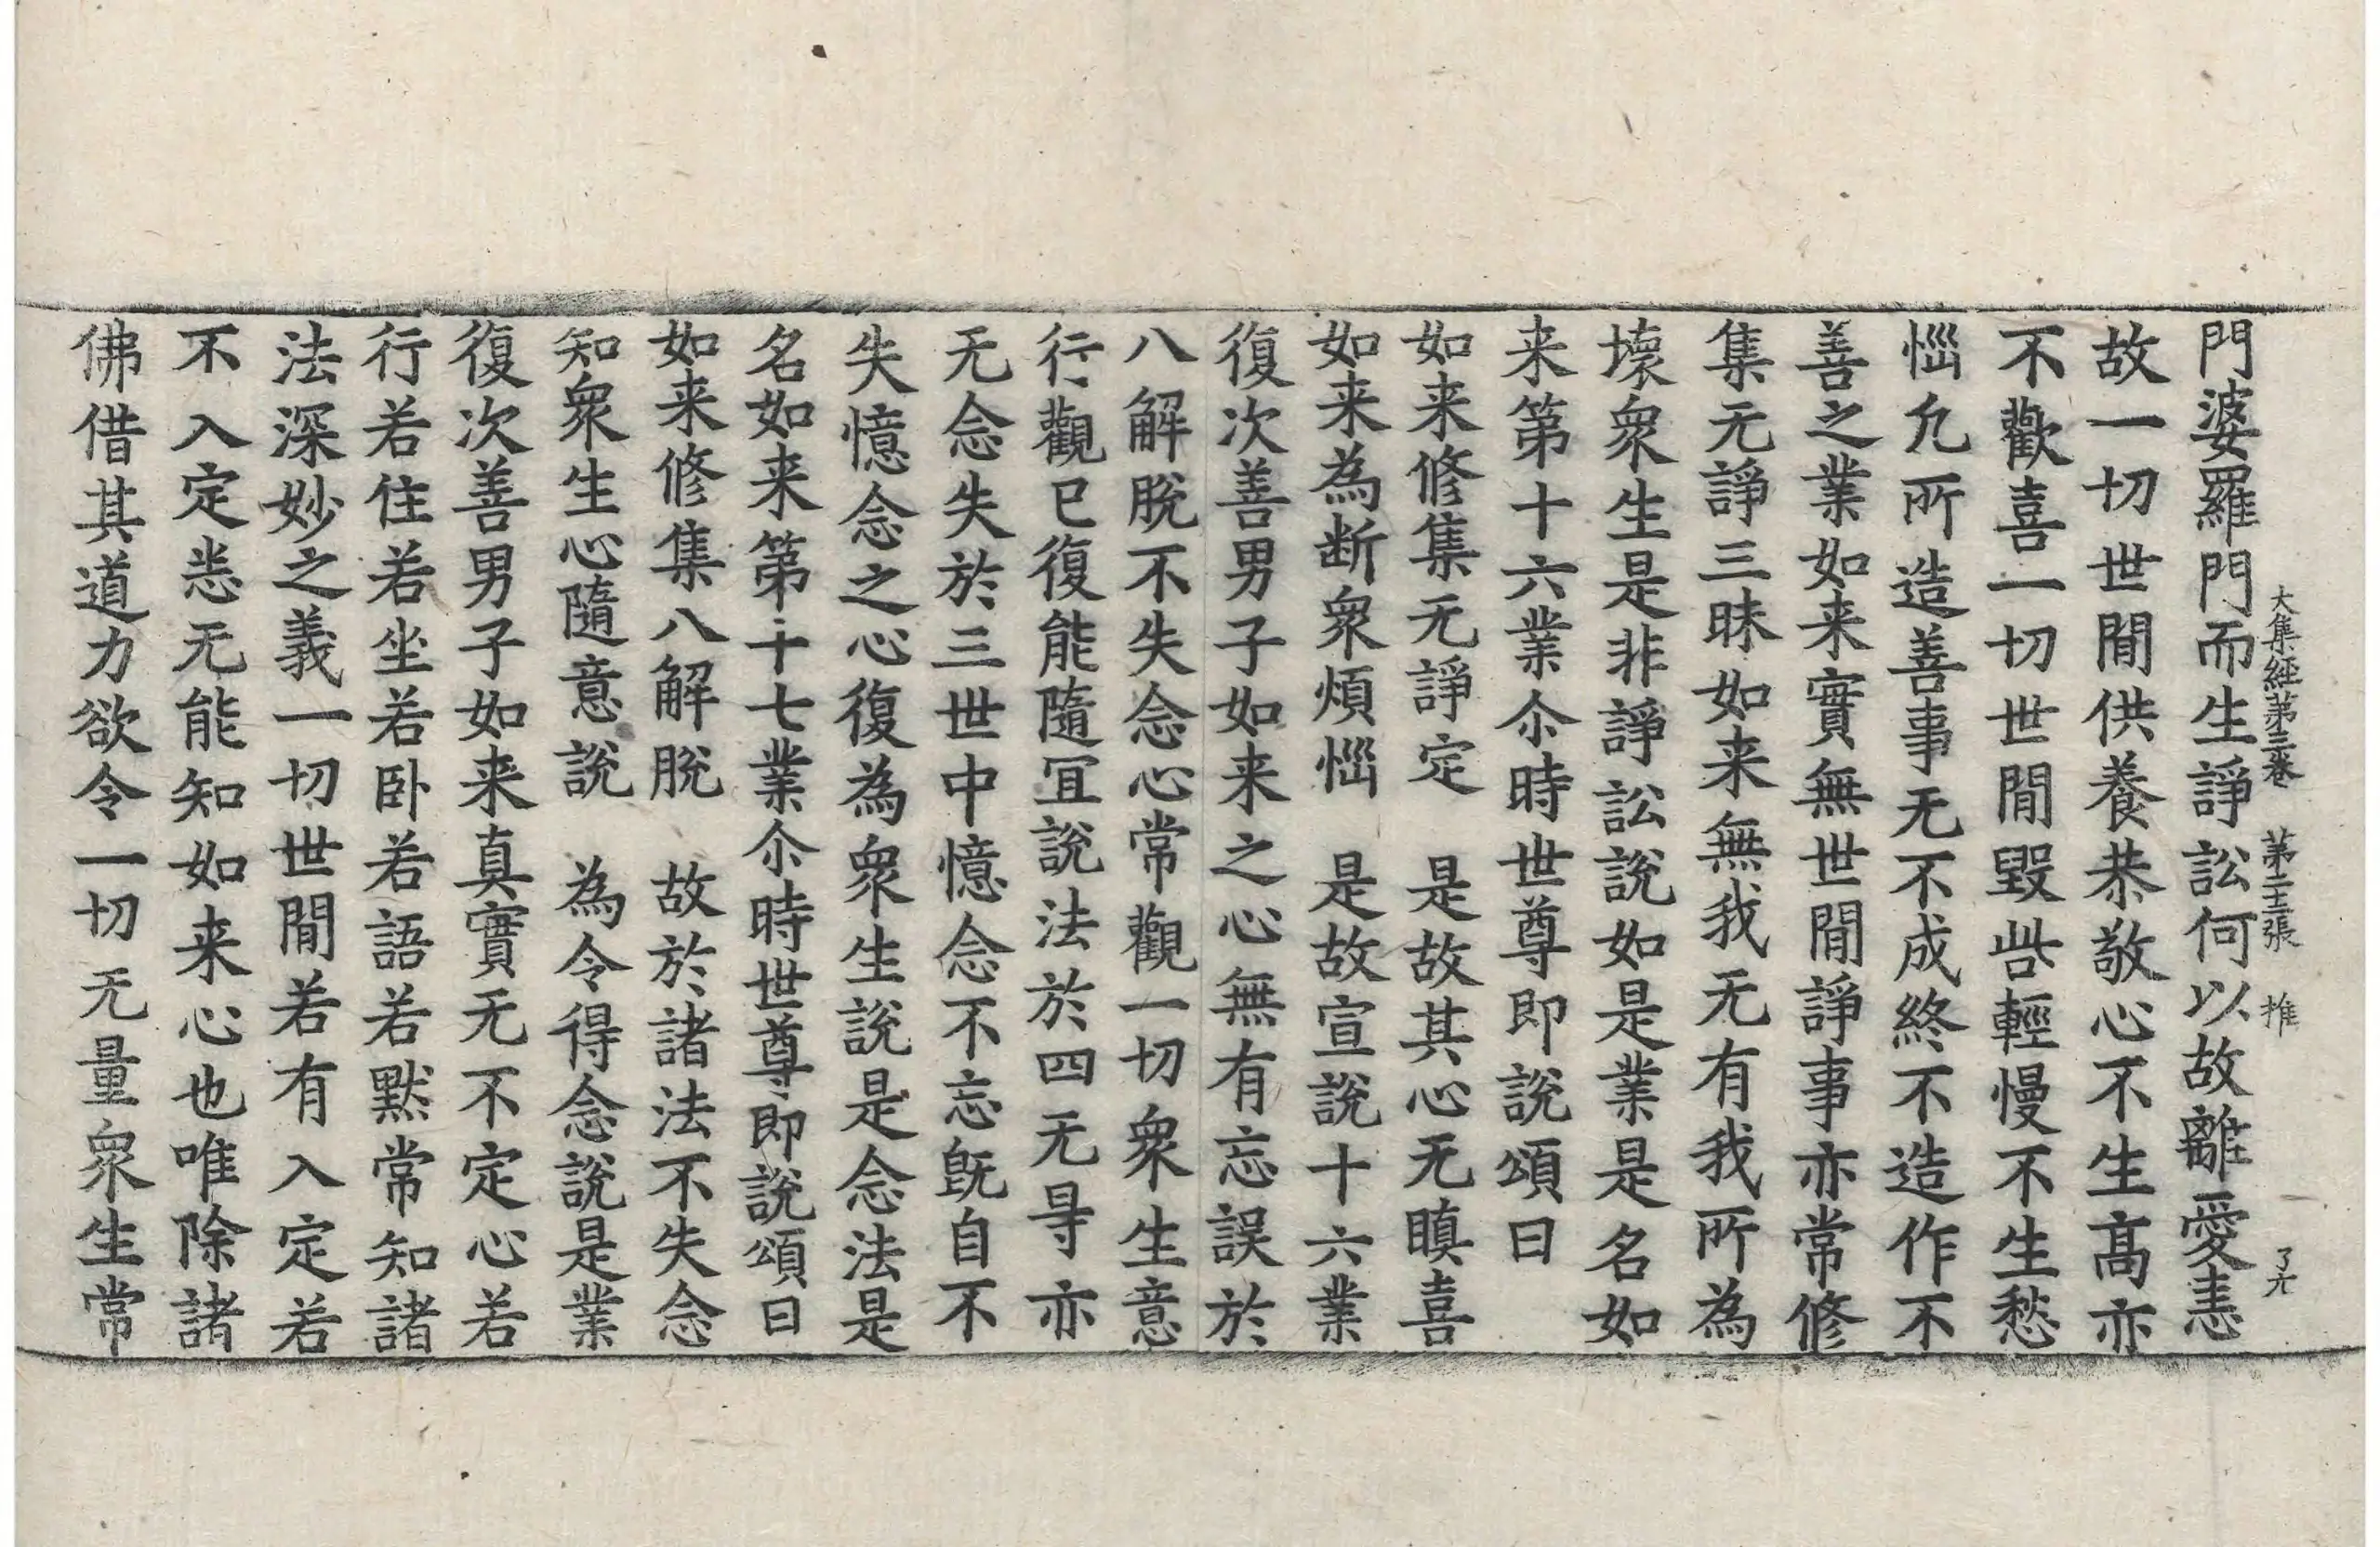 大集經第三卷　張　推
門婆羅門而生諍訟何以故離愛恚
故一切世間供養恭敬心不生髙亦
不歡喜一切世間毀呰輕慢不生愁
惱凢所造善事无不成終不造作不
善之業如来實無世間諍事亦常修
集无諍三昧如来無我无有我所為
壞衆生是非諍訟說如是業是名如
来第十六業尒時世尊即說頌曰
如来修集无諍定　是故其心无瞋喜
如来為断衆煩惱　是故宣說十六業
復次善男子如来之心無有忘誤於
八解脫不失念心常觀一切衆生意
行觀已復能隨冝說法於四无㝵亦
无念失於三世中憶念不忘旣自不
失憶念之心復為衆生說是念法是
名如来第十七業尒時世尊即說頌曰
如来修集八解脫　故於諸法不失念
知衆生心隨意說　為令得念說是業
復次善男子如来真實无不定心若
行若住若坐若卧若語若默常知諸
法深妙之義一切世間若有入定若
不入定悉无能知如来心也唯除諸
佛借其道力欲令一切无量衆生常